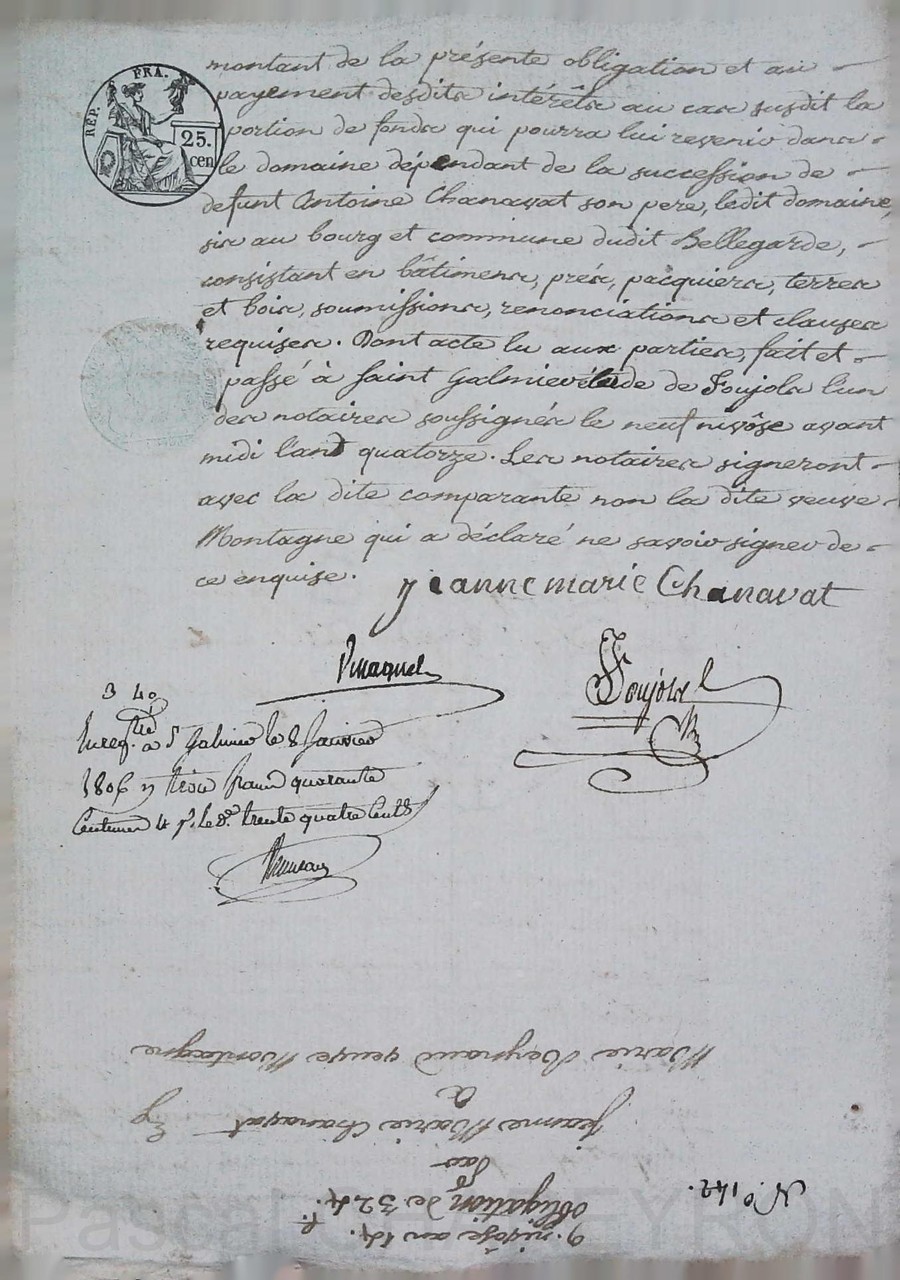 RÉP. FRA.
25.
cen
montant de la présente obligation et au
payement desdits intérêts au cas susdit la
portion de fonds qui pourra lui revenir dans
le domaine dépendant de la succession de
defunt Antoine Chanavat son pere, ledit domaine,
sis au bourg et commune dudit Bellegarde,
consistant en bâtimens, prés, pacquiers, terres
et bois, soumissions, renonciations et clauses
requises. Dont acte lu aux parties, fait et
passé à Saint Galmier étude de Foujols l'un
des notaires soussignés le neuf nivôse avant
midi l'an quatorze. Les notaires signeront
avec la dite comparante non la dite veuve
Montagne qui a déclaré ne savoir signer de
ce enquise.
jeanne marie Chanavat
Foujols
3 40
Enreg.tré à S.t Galmier le 8 Janvier
1806 trois francs quarante
Centimes
trente quatre Cent.s
9. nivôse an 14.
Obligation de 324 f.
Par
Jeanne Marie Chanavat
a
Marie Reynaud veuve Montagne
N.o 142.
Pascal CHALEYRON